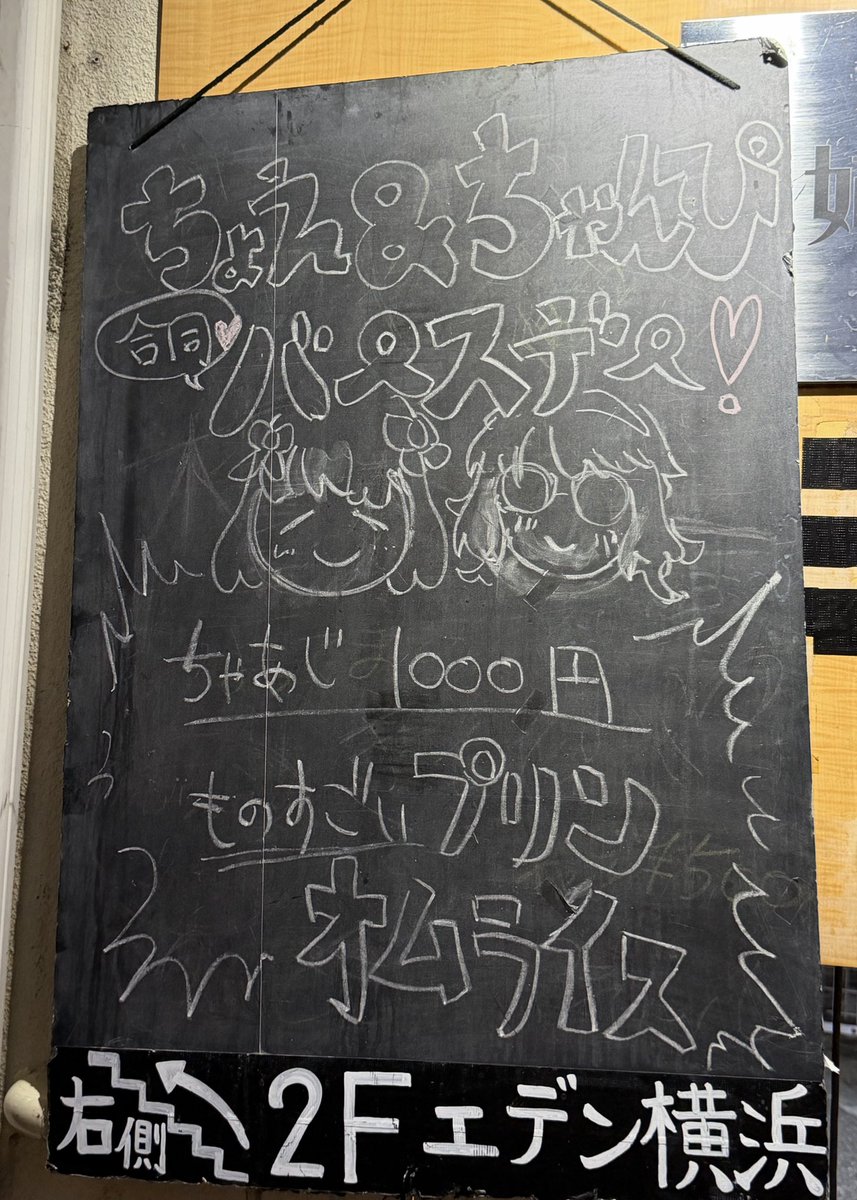 ちょえ&ちゃんぴ
合同
バースデー!
ちゃあじ 1000円
ものすごいプリン
オムライス
右側 2F エデン横浜